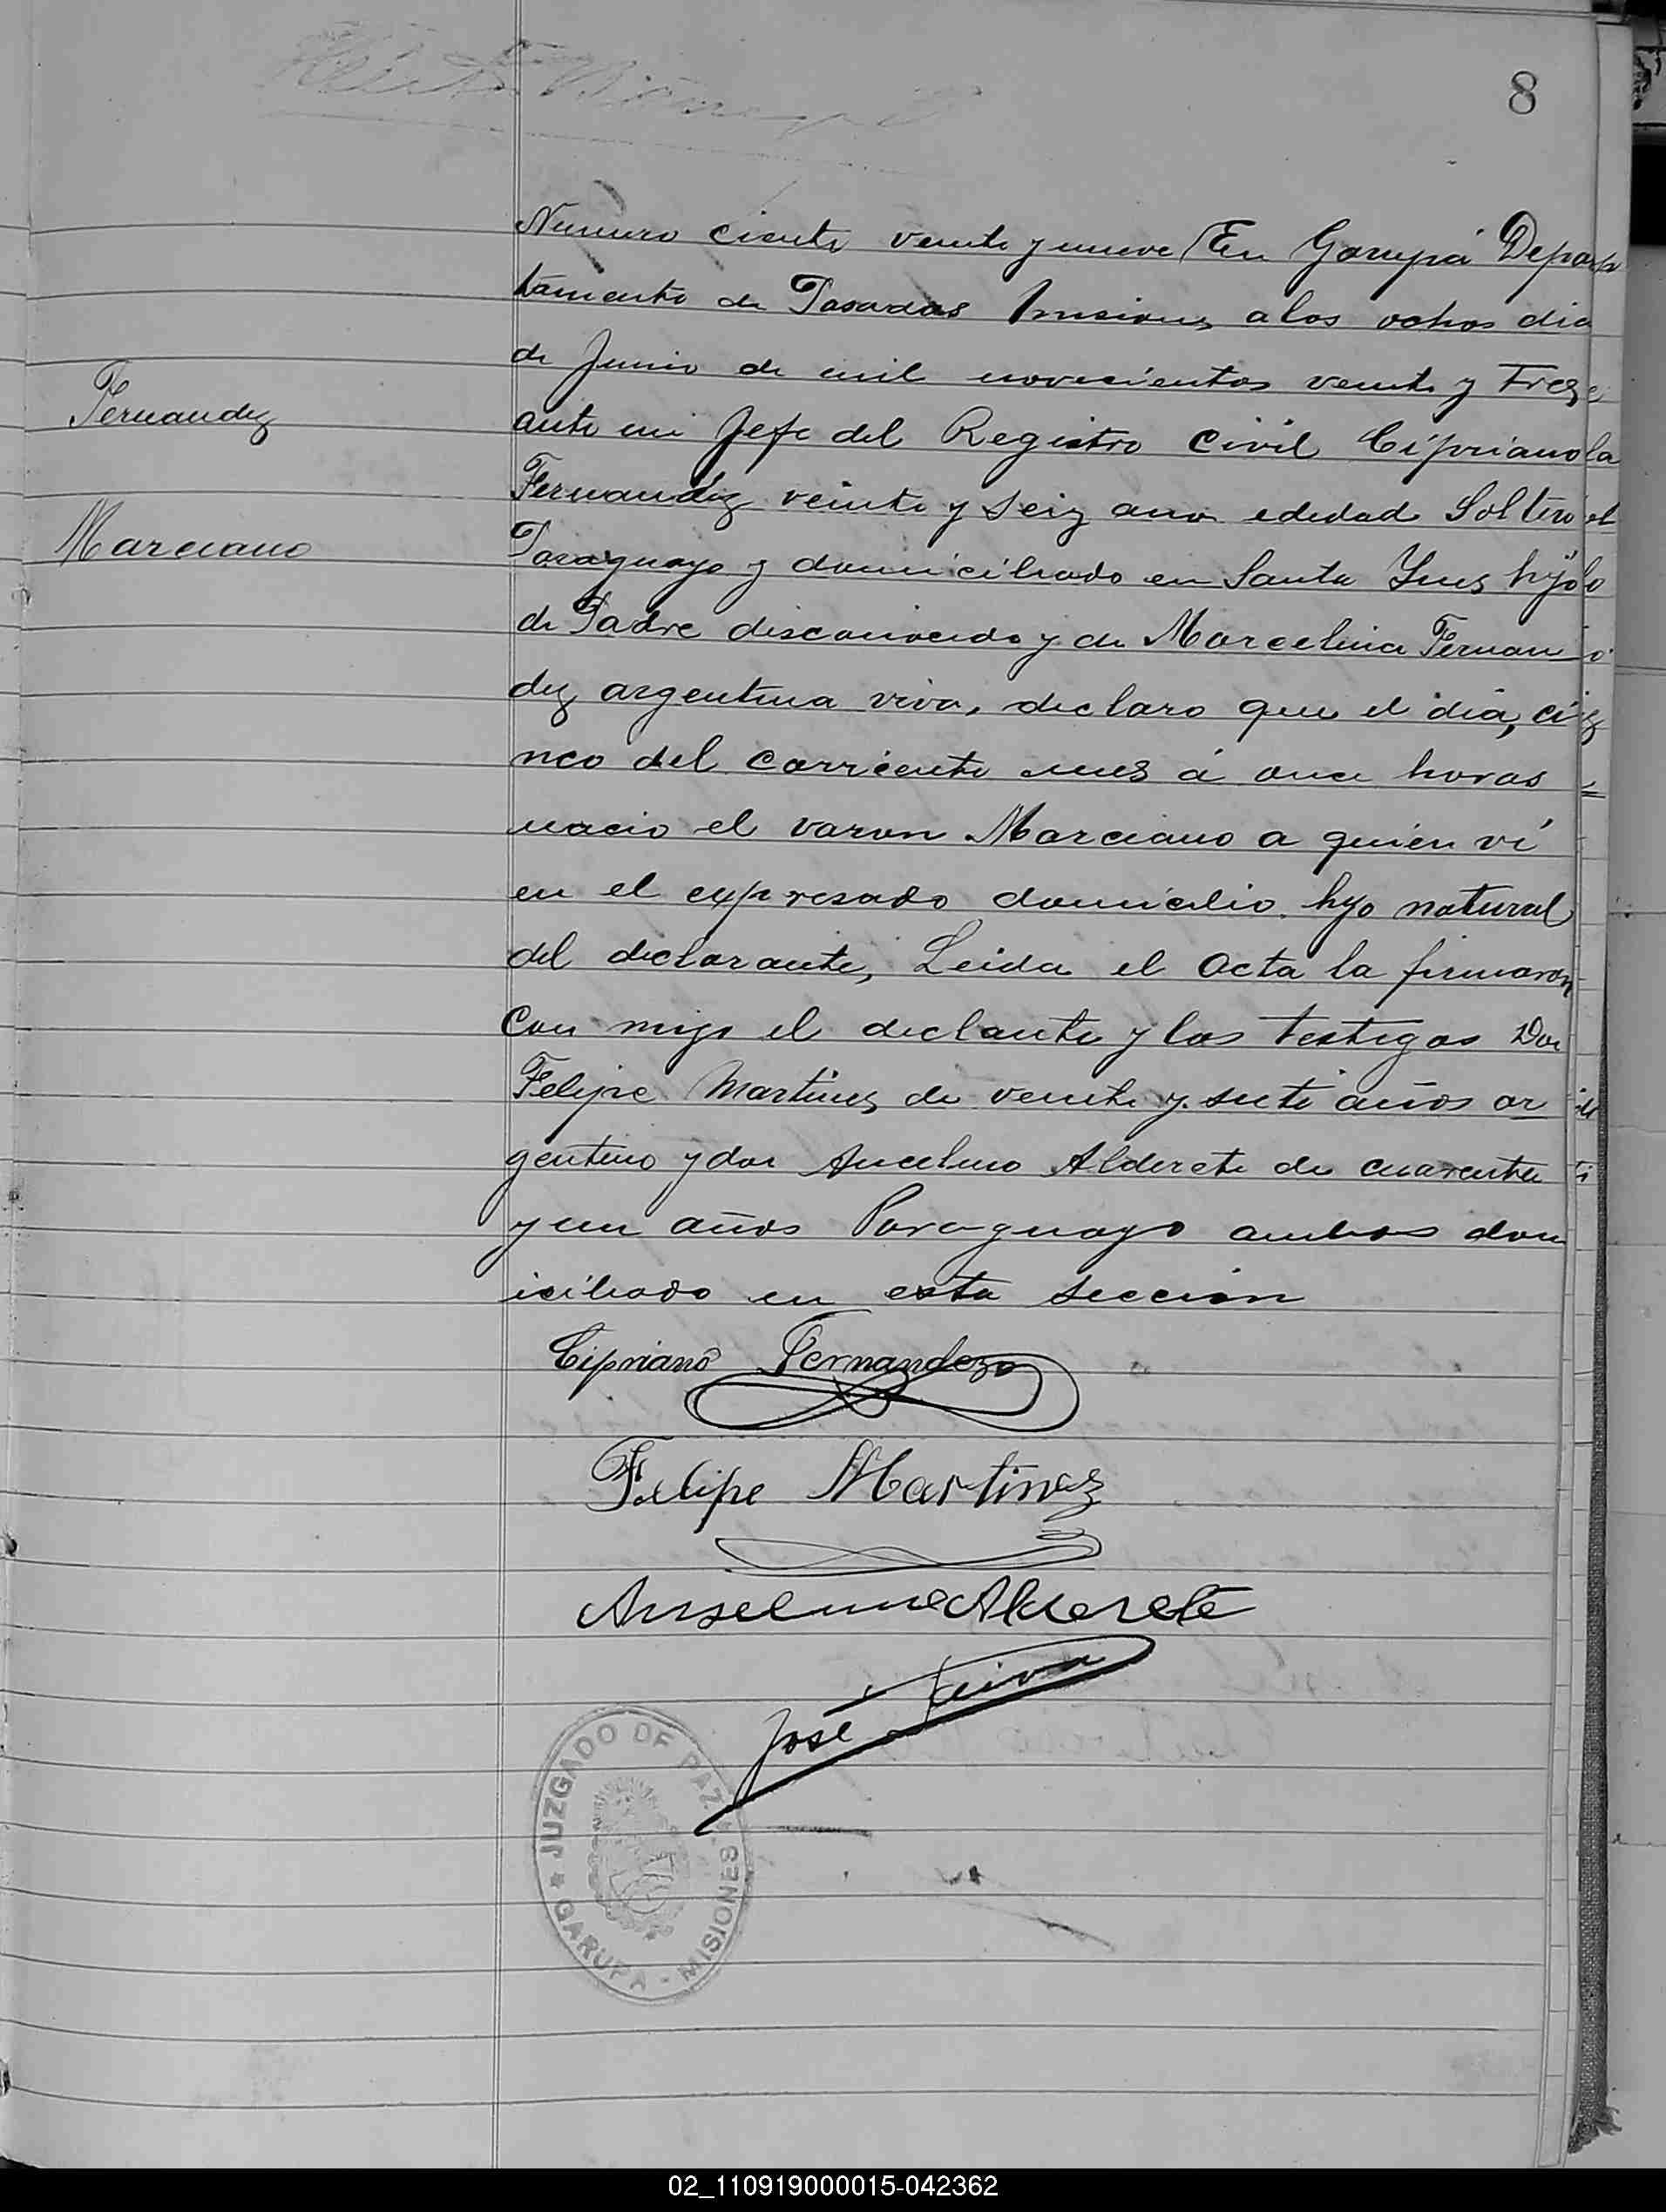 8
Numero ciento veinte y nueve En Garupá Depar
tamento de Posadas Misiones a los ochos dia
de Junio de mil novecientos veinte y Tres
ante mi Jefe del Registro Civil Cipriano
Fernandez veinte y seiz ano ededad Soltero
Fernandez
Paraguayo y domiciliado en Santa Ynes hijo
Marciano
de Padre desconocido y de Marcelina Fernan
dez argentina viva, declaro que el dia, ci
nco del corriente mes á once horas
nacio el varon Marciano a quien ví
en el expresado domicilio. hijo natural
del declarante, Leida el Acta la firmaron
con migo el declante y los testigos Don
Felipe Martines de veinte y siete años ar
gentino y don Ancelmo Alderete de cuarenta
y un años Paraguayo ambos dom
iciliado en esta seccion
Cipriano Fernandez
Felipe Martinez
Anselmo Alderete
José Paiva
JUZGADO DE PAZ
GARUPA - MISIONES
02_110919000015-042362